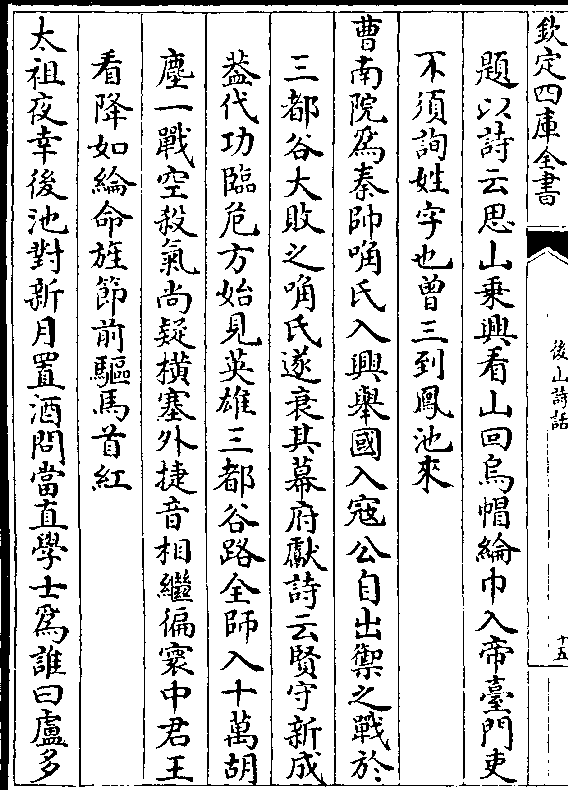 欽定四庫全書
後山詩話
十五
題以詩云思山乗興看山回烏帽綸巾入帝臺門吏
不須詢姓字也曾三到鳳池來
曹南院爲秦帥唃氏入興舉國入寇公自出禦之戰於
三都谷大敗之唃氏遂衰其幕府獻詩云賢守新成
葢代功臨危方始見英雄三都谷路全師入十萬胡
塵一戰空殺氣尚疑橫塞外捷音相繼徧寰中君王
看降如綸命旌節前驅馬首紅
太祖夜幸後池對新月置酒問當直學士爲誰曰盧多